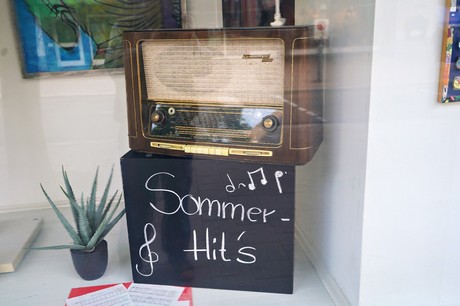 Sommer-
Hit's